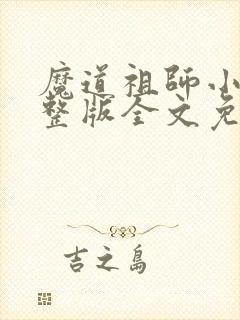 魔道祖师小
整版全文免
吉之島